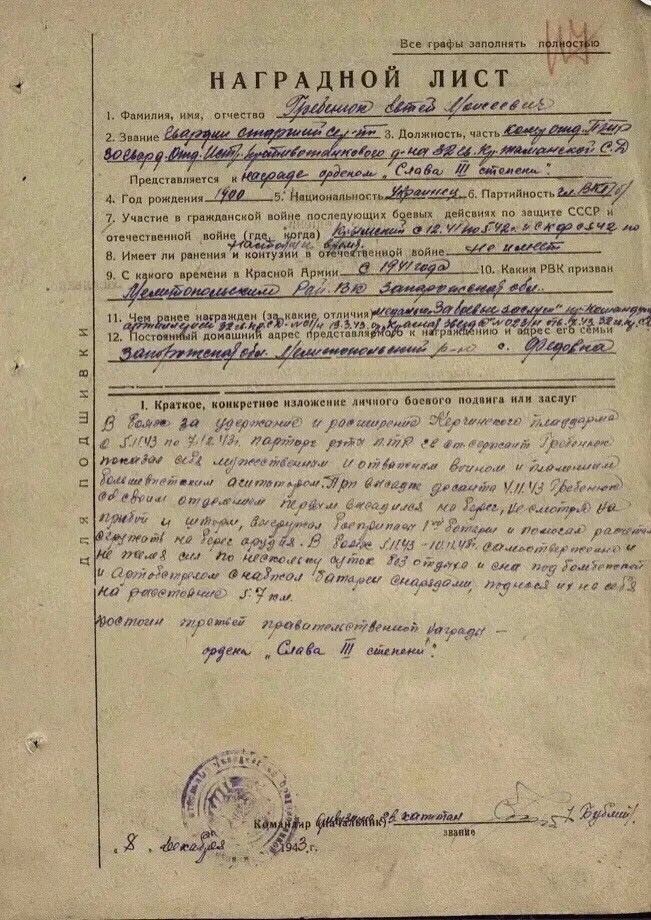 Все графы заполнять полностью
НАГРАДНОЙ ЛИСТ
1. Фамилия, имя, отчество Гребенюк Евтей Моисеевич
2. Звание Гвардии старший с-нт 3. Должность, часть ком. отд. ПТР
30 Гвард. Отд. Истр. Противотанкового д-на 32 Гв. С.Д
Представляется к награде орденом „Слава III степени"
4. Год рождения 1900 5. Национальность Украинец 6. Партийность чл. ВКП(б)
7. Участие в гражданской войне последующих боевых действиях по защите СССР и
отечественной войне (где, когда) Крымский с 12.41 по 5.42 г. и СКФ с 5.42 по
настоящ. время.
8. Имеет ли ранения и контузии в отечественной войне не имеет
9. С какого времени в Красной Армии с 1941 года 10. Каким РВК призван
Мелитопольским Рай. ВК Запорожской обл.
11. Чем ранее награжден (за какие отличия) медалью „За боевые заслуги"
12. Постоянный домашний адрес представляемого к награждению и адрес его семьи
Запорожская обл. Мелитопольский р-н с.
ДЛЯ ПОДШИВКИ
I. Краткое, конкретное изложение личного боевого подвига или заслуг
В боях за удержание и расширение Керченского плацдарма
с 5.11.43 по 7.12.43г. парторг роты ПТР гв. ст. сержант Гребенюк
показал себя мужественным и отважным воином и пламенным
большевистским агитатором. При высадке десанта 4.11.43 Гребенюк
со своим отделением первым высадился на берег, не смотря на
прибой и шторм, выгружал боеприпасы 1ой батареи и помогал расчетам
сгружать на берег орудия. В боях 5.11.43 - 10.11.43г. самоотверженно и
не жалея сил по нескольку суток без отдыха и сна под бомбежкой
и артобстрелом снабжал батареи снарядами, поднося их на себе
на расстояние 5-7 км.
Достоин третьей правительственной награды —
ордена „Слава III степени".
Командир (начальник) дивизиона гв. капитан Бублий
звание
„8" декабря 1943 г.